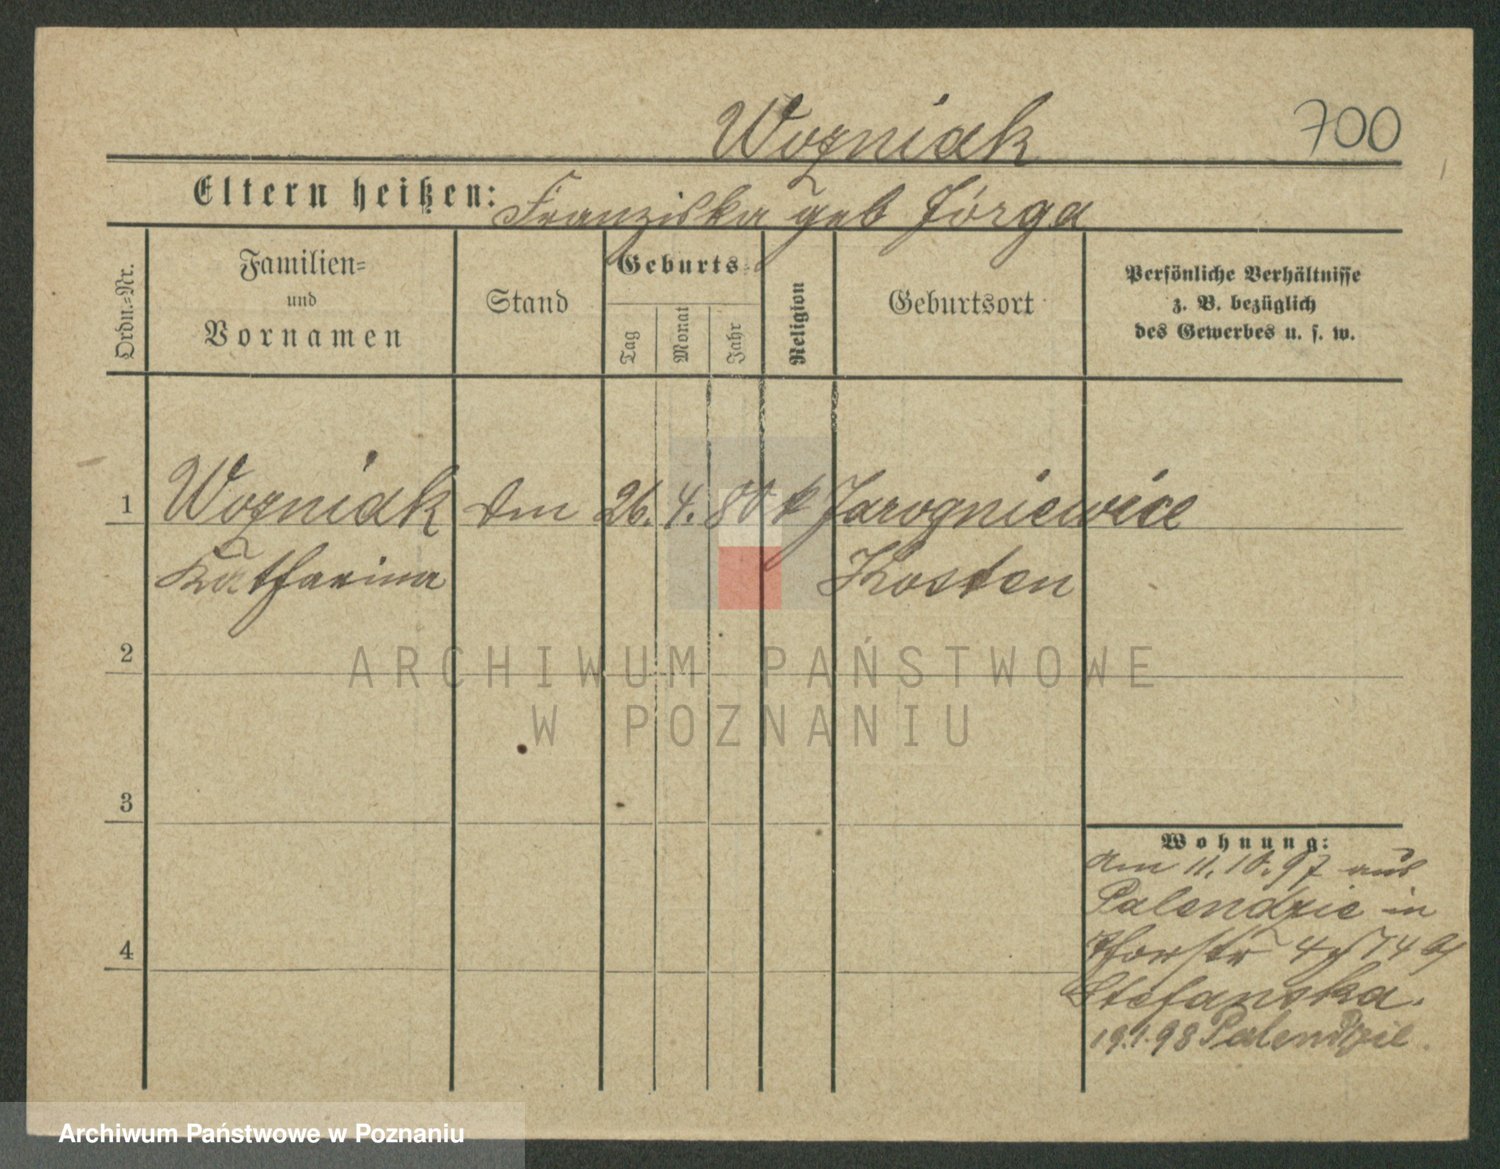 Wozniak 700
Eltern heißen: Franziska geb Jórga
Ordn.-Nr.
Familien-
und
Vornamen
Stand
Geburts-
Tag
Monat
Jahr
Religion
Geburtsort
Persönliche Verhältnisse
z. B. bezüglich
des Gewerbes u. s. w.
1 Wozniak 26. 4. 80 k Jarogniewice
Katharina Kosten
2
3
4
Wohnung:
am 11.10.97 aus
Palendzie in
4 74
Stefanska.
19.1.98 Palendzie.
ARCHIWUM PAŃSTWOWE
W POZNANIU
Archiwum Państwowe w Poznaniu